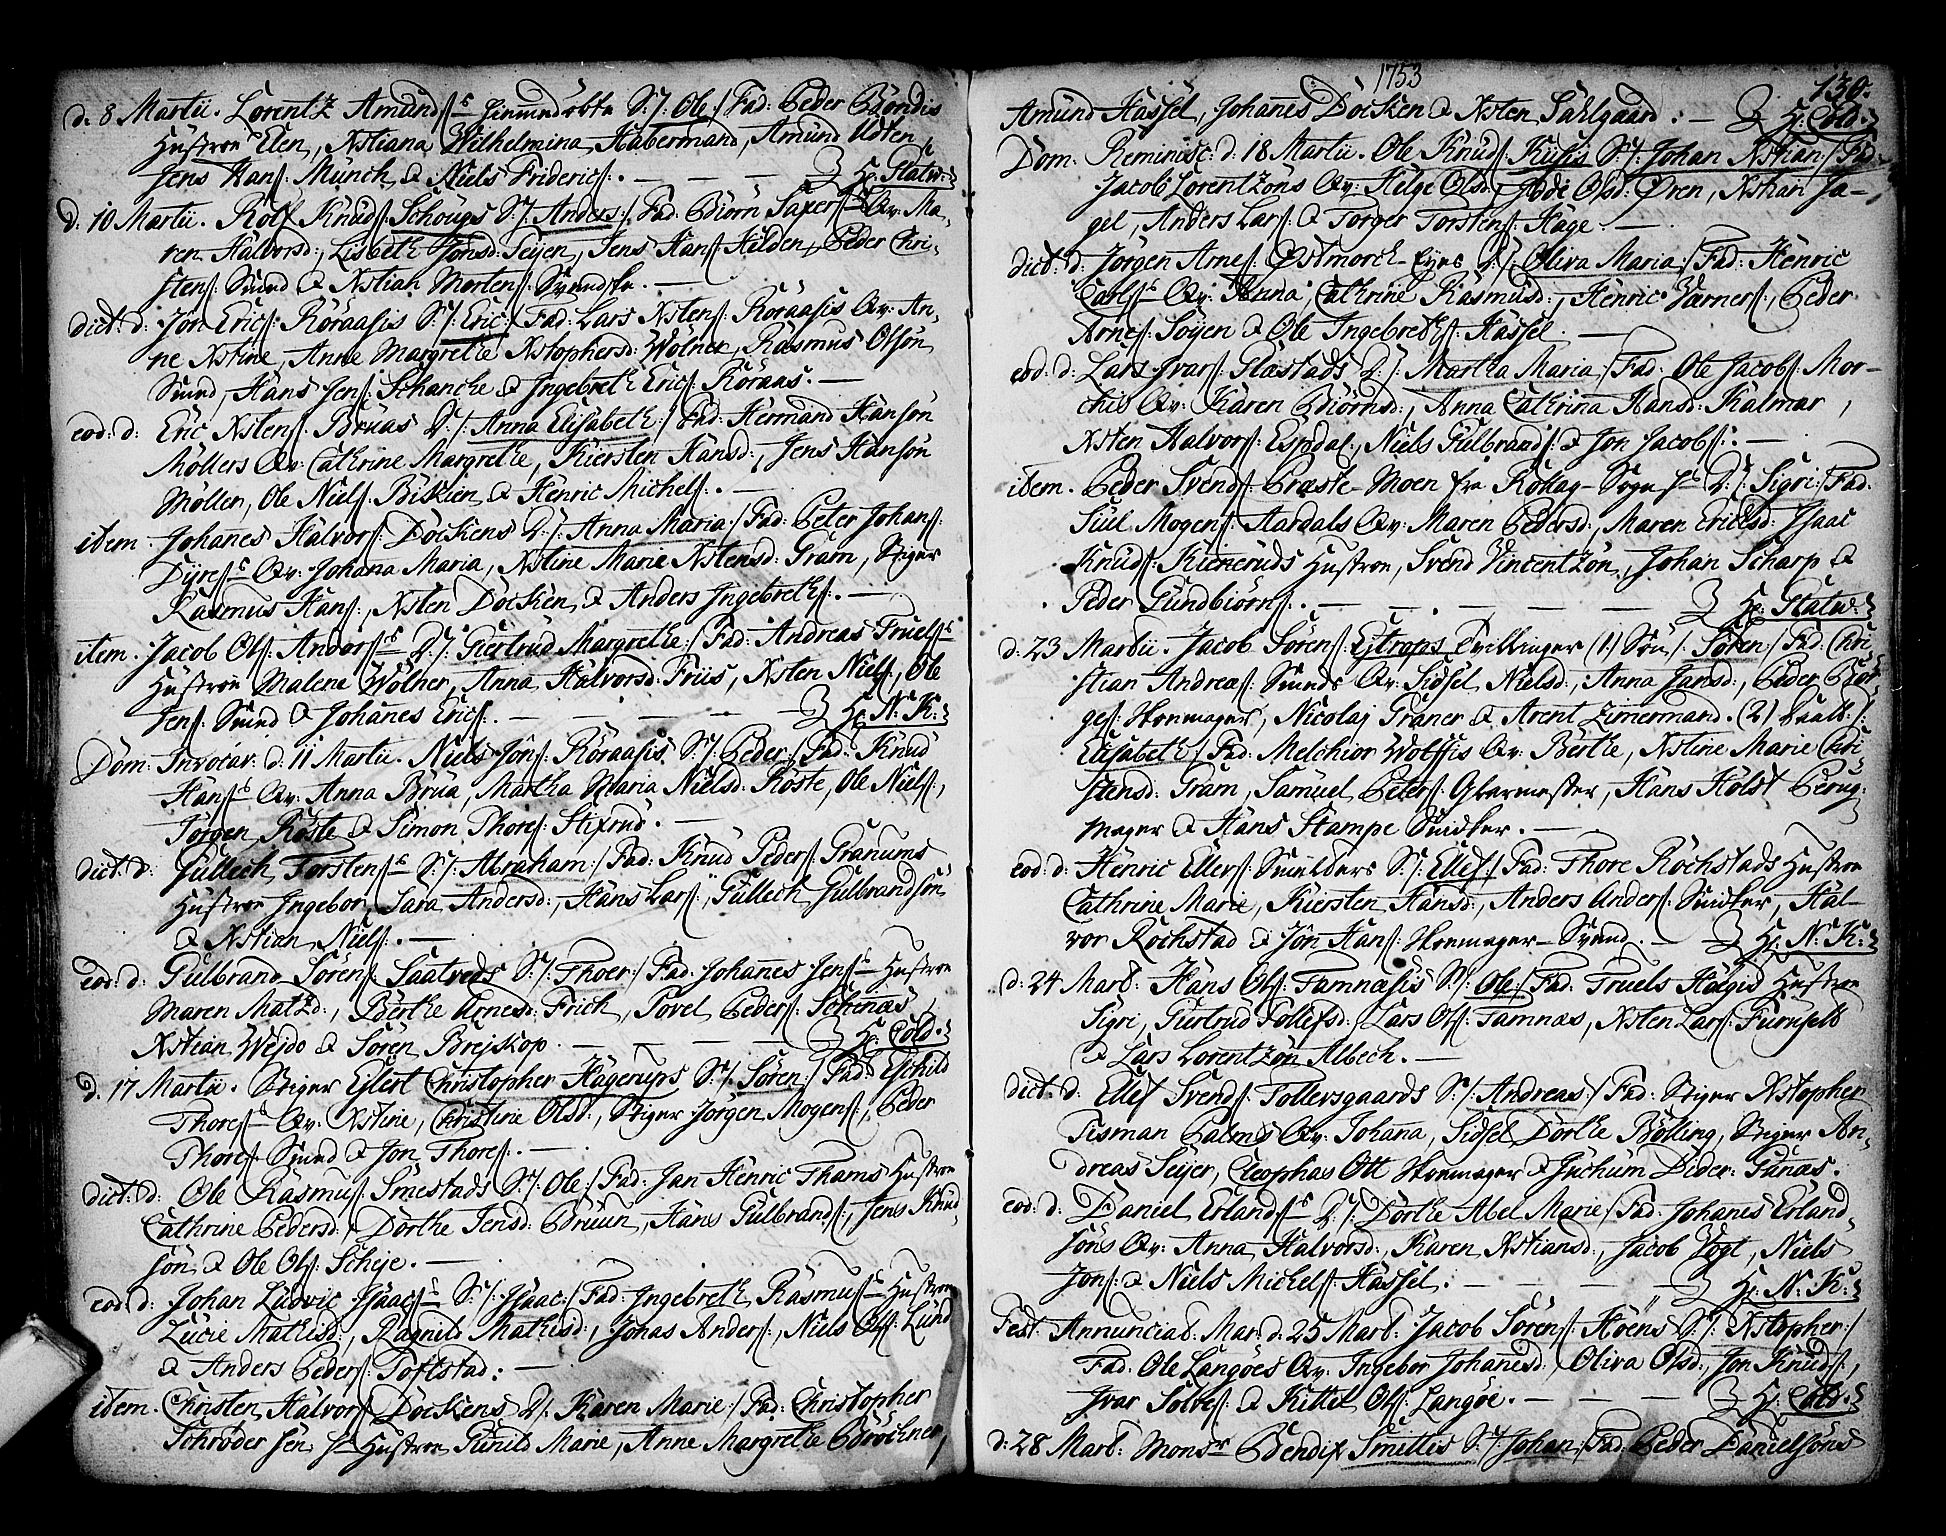 d. 8 Martii. Lorentz Amunds: S:/: Ole:/ Fad: Peder Biöndis
Hustroe Elen, Xstiana Wilhelmina Habermand, Amund Udten
Jens Hans: Münch & Niels Friderics:. H: Statw:
d: 10 Martii. Rolf Knuds: Schougs S:/: Anders:/ Fad: Biörn Saxers: Qv: Ma-
ren Halvorsd:, Lisbeth Jonsd: Seyen, Jens Hans: Hilden, Peder Chri-
stens: Smed & Xstian Mortens: Svendske.
dict: d: Jon Erics: Röraasis S:/: Eric:/ Fad: Lars Xstens: Röraasis Qv: An-
ne Xstine, Anne Margrethe Xstophersd: Wölner, Rasmus Olsön
Smed, Hans Jens: Schancke & Ingebreth Erics: Röraas.
eod: d: Eric Xstens: Bruas D:/: Anna Elisabeth:/ Fad: Hermand Hansön
Möllers Qv: Cathrine Margrethe, Kiersten Hansd:, Jens Hansön
Möller, Ole Niels: Biskien & Henric Michels:.
item. Johanes Halvors: Dockens D:/: Anna Maria:/ Fad: Peter Johans:
Dyres: Qv: Johana Maria, Xstine Marie Xstensd: Gram, Stiger
Rasmus Hans:, Xsten Docken & Anders Ingebreths:.
item. Jacob Ols: Andors: D:/: Giertrud Margrethe:/ Fad: Andreas Truels:
Hustroe Malene Wölner, Anna Halvorsd: Friis, Xsten Niels:, Ole
Jens: Smed & Johanes Erics:. H: N: K:
Dom: Invocav. d. 11 Martii. Niels Jöns: Röraasis S:/: Peder:/ Fad: Knud
Hans: Qv: Anna Brua, Martha Maria Nielsd: Röste, Ole Niels:,
Jörgen Röste & Simon Thores: Stixrud.
dict: d: Gullech Torstens: S:/: Abraham:/ Fad: Knud Peders: Granums
Hustroe Ingebor, Sara Andersd:, Hans Lars:, Gullech Gulbrandsön
& Xstian Niels:.
eod: d: Gulbrand Sörens: Saatveds S:/: Thoer:/ Fad: Johannes Jens: Hustroe
Maren Matzd:, Börthe Arnesd: Frich, Povel Peders: Schenaas,
Xstian Wejdo & Sören Brejskop. H: Cold:
d. 17 Martii. Stiger Ejlert Christopher Hagerups S:/: Sören:/ Fad: Eschild
Thores: Qv: Xstine, Christine Olsd:, Stiger Jörgen Mogens:, Peder
Thores: Smed & Jon Thores:.
dict: d: Ole Rasmus: Smestads S:/: Ole:/ Fad: Jan Henric Thams Hustroe
Cathrine Pedersd:, Dorthe Jensd: Bruun, Hans Gulbrands:, Jens Knud-
sön & Ole Ols: Scheje.
eod: d: Johan Ludvic Isaacs: S:/: Isaac:/ Fad: Ingebreth Rasmus: Hustroe
Lucie Mathisd:, Ragnild Mathisd:, Jonas Anders:, Niels Ols: Lund
& Anders Peders: Toftstad:
item. Christen Halvors: Dockens D:/: Karen Marie:/ Fad: Christopher
Schrøder sen: Hustroe Gunild Marie, Anne Margrethe Bröckner,
1753
130.
Amund Hassel, Johanes Docken & Xsten Sahlgaard: H: Cold:
Dom. Reminisc: d. 18 Martii. Ole Knuds: Kusis S:/: Johan Xstian:/ Fad:
Jacob Lorentzöns Qv: Helge Olsd:, Jode Olsd: Øren, Xstian Ja-
gel, Anders Lars: & Torger Torstens: Hage.
dict: d: Jörgen Arnes: Østmorck Eyes D:/: Oliva Maria:/ Fad: Henric
Carls: Qv: Anna Cathrine Rasmusd:, Henric Værners:, Peder
Arnes: Söyen & Ole Ingebreths: Hassel.
eod: d: Lars Ivars: Glæstads D:/: Martha Maria:/ Fad: Ole Jacobs: Mor-
chis Qv: Karen Biörnsd:, Anna Cathrina Hansd: Kalmar,
Xsten Halvors: Espdal, Niels Gulbrands: & Jon Jacobs:.
item. Peder Svends: Præste-Moen fra Rollag-Sogn D:/: Sigri:/ Fad.
Juul Mogens: Aardals Qv: Maren Pedersd:, Maren Ericsd: Isaac
Knuds: Kieneruds Hustroe, Svend Vincentzön, Johan Scharp &
Peder Gundbiörns:. H: Statw:
d: 23 Martii. Jacob Sörens: Ejtrops Tvillinger (1) Sön/: Sören:/ Fad: Chri-
stian Andreas: Smeds Qv: Sidsel Nielsd:, Anna Jansd:, Peder Bor-
ges: Skoemager, Nicolaj Graner & Arent Zimermand. (2) Daatt:/:
Elisabeth:/ Fad: Melchior Wolffis Qv: Berthe, Xstine Marie Chri-
stensd: Gram, Samuel Peters: Glarmester, Hans Holst Perug-
mager & Hans Stampe Snidker.
eod: d: Henric Ellers: Smelders S:/: Ellef:/ Fad: Thore Rochstads Hustroe
Cathrine Marie, Kiersten Hansd:, Anders Anders: Snidker, Hal-
vor Rochstad & Jön Hans: Skoemager-Svend. H: N: K:
d: 24 Mart. Hans Ols: Tamnæsis S:/: Ole:/ Fad: Truels Helgis Hustroe
Sigri, Giertrud Tollefsd:, Lars Ols: Tamnæs, Xsten Lars: Furuset
& Lars Lorentzön Albech.
dict: d: Ellef Svends: Tollersgaards S:/: Andreas:/ Fad: Stiger Xstopher
Tisman Palms Qv: Johana, Sidsel Dorthe Bölling, Stiger An-
dreas Seyer, Cleophas Ott Skoemager & Jochum Dider: Ganæs.
eod: d: Daniel Erlands: D:/: Dorthe Abel Marie:/ Fad: Johanes Erland-
söns Qv: Anna Halvorsd:, Karen Xstiansd:, Jacob Vogt, Niels
Jons: & Niels Michels: Hassel: H: N: K:
Fest: Annunciat. Mar: d. 25 Mart: Jacob Sörens: Höens S:/: Xstopher:/
Fad: Ole Langöes Qv: Ingebor Johanesd:, Oliva Olsd:, Jon Knuds:,
Ivar Solves: & Kittel Ols: Langöe. H: Cold:
d: 28 Mart: Monsr Bendix Smittis S:/: Johan:/ Fad: Peder Danielsöns